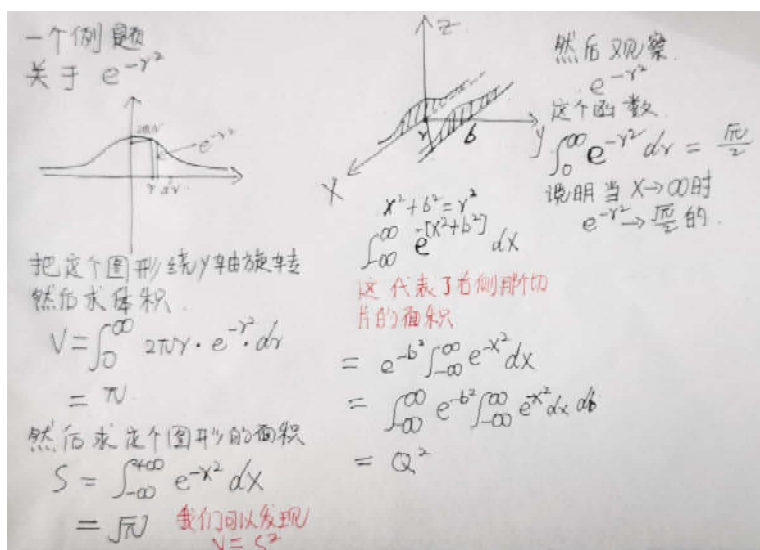 一个例题
关于 e^{-r²}
e^{-r²}
r dr
把这个图形绕y轴旋转
然后求体积
V=∫₀^∞ 2πr·e^{-r²}·dr
= π
然后求这个图形的面积
S = ∫_{-∞}^{+∞} e^{-x²} dx
= √π
我们可以发现
V = S²
z
y
x
r
b
x²+b²=r²
∫_{-∞}^{∞} e^{-[x²+b²]} dx
这代表了右侧那个切
片的面积
= e^{-b²}∫_{-∞}^{∞} e^{-x²} dx
= ∫_{-∞}^{∞} e^{-b²}∫_{-∞}^{∞} e^{-x²} dx db
= Q²
然后观察
e^{-r²}
这个函数
∫₀^∞ e^{-r²} dr = √π/2
说明当 x→∞时
e^{-r²}→√π/2 的.